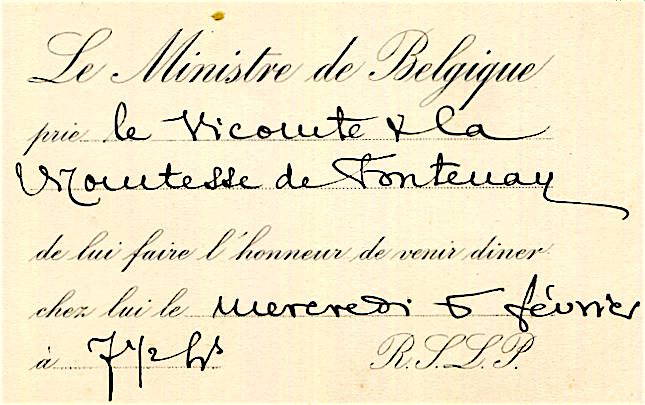 Le Ministre de Belgique
prie le Vicomte & la
Vicomtesse de Fontenay
de lui faire l'honneur de venir diner
chez lui le mercredi 5 février
à 7 1/2 hs
R.S.L.P.